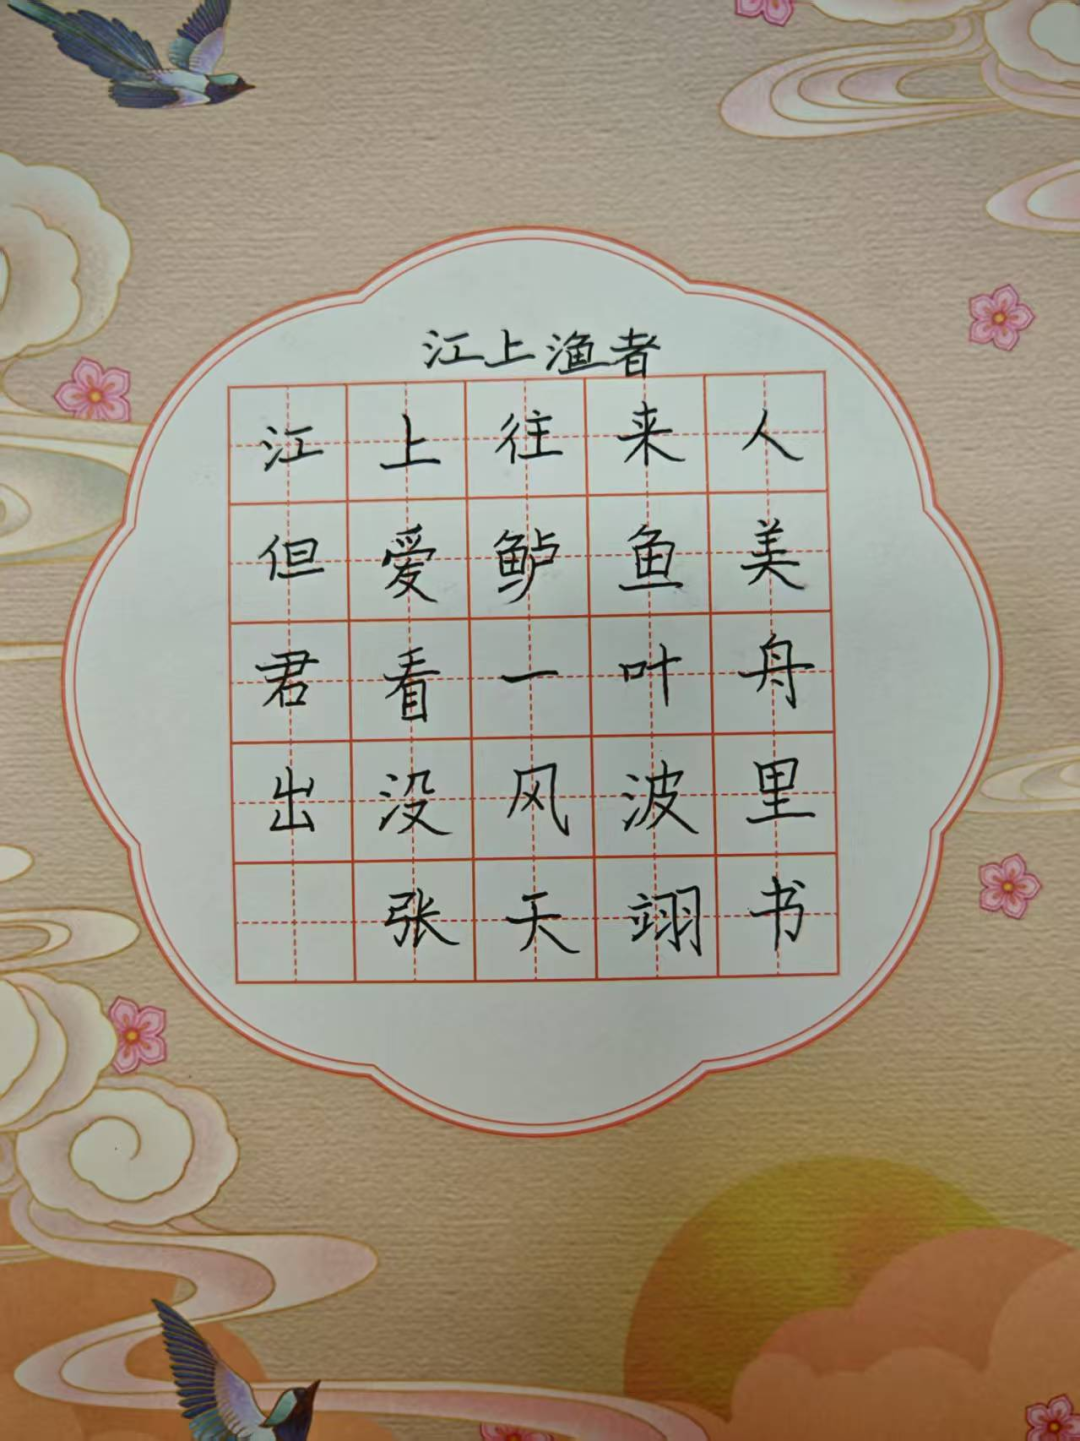 江上渔者
江上往来人
但爱鲈鱼美
君看一叶舟
出没风波里
张天翊书